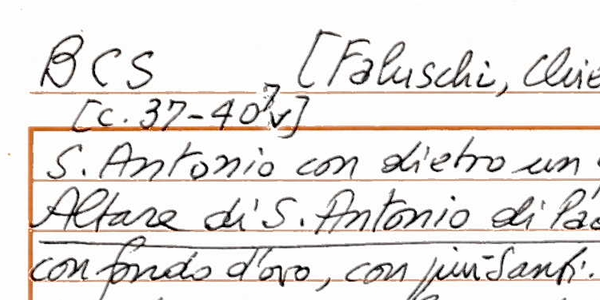 BCS [Faluschi, Chie
[c. 37-40v]
S. Antonio con dietro un
Altare di S. Antonio di Pad
con fondo d'oro, con più Santi.